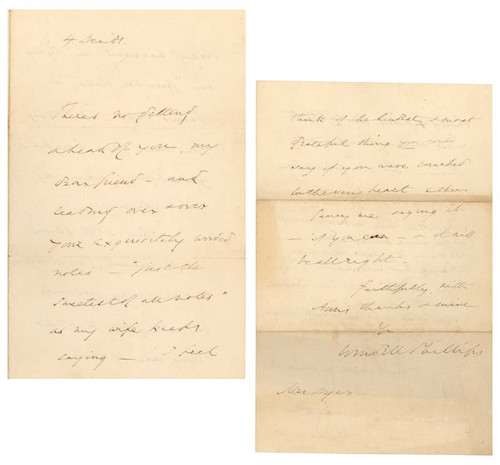 4 Dec '81.
There's no getting
ahead of you, my
Dear friend - and
reading over & over
your exquisitely worded
notes - "just the
sweetest of all notes"
as my wife keeps
saying - I feel
Think of the kindest & most
grateful thing you ever
say if you were touched
to the very heart & then
fancy me saying it
- if you can - &
be all right -
Faithfully with
Ann's thanks & mine
Yr
Wendell Phillips
Mrs